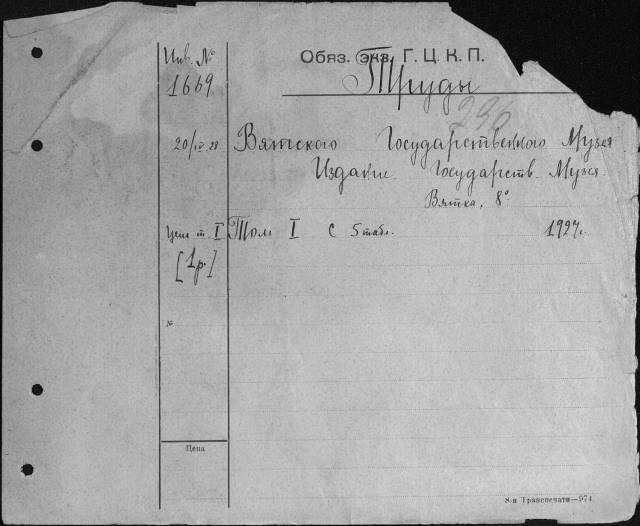 Инв. № Обяз. экз. Г. Ц. К. П.
1669. Труды
236
20/IV 28 Вятского Государственного Музея
Издание Государств. Музея.
Вятка, 8°
Цена т. I Том I С 5 табл. 1927г.
[1р.]
№
Цена
8-я Транспечати—974